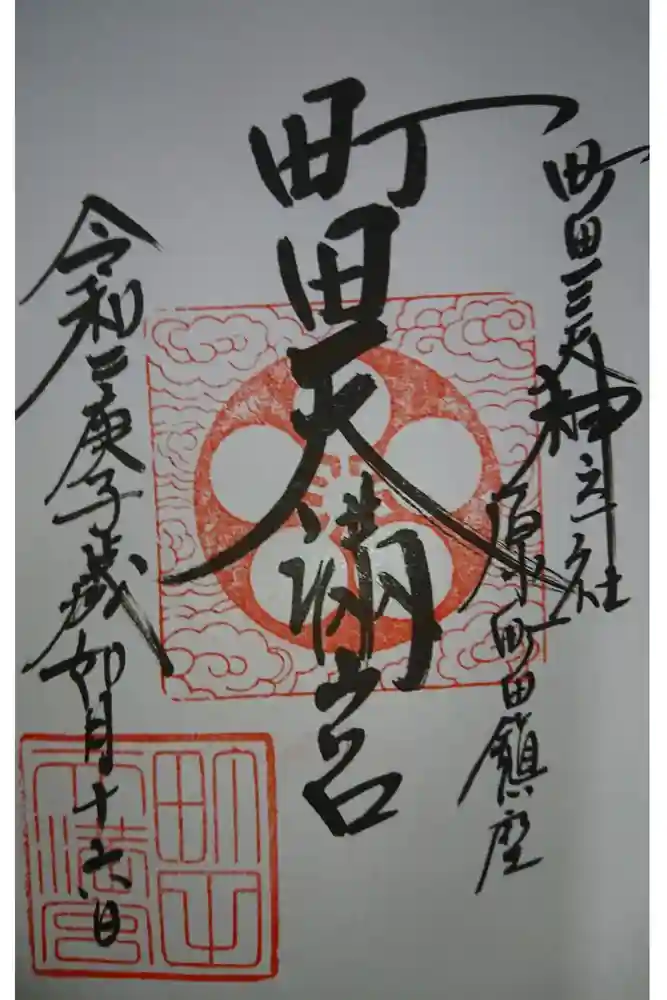 町田三天神之社
原町田鎮座
町田天満宮
令和二庚子歳如月十六日
町田天満宮